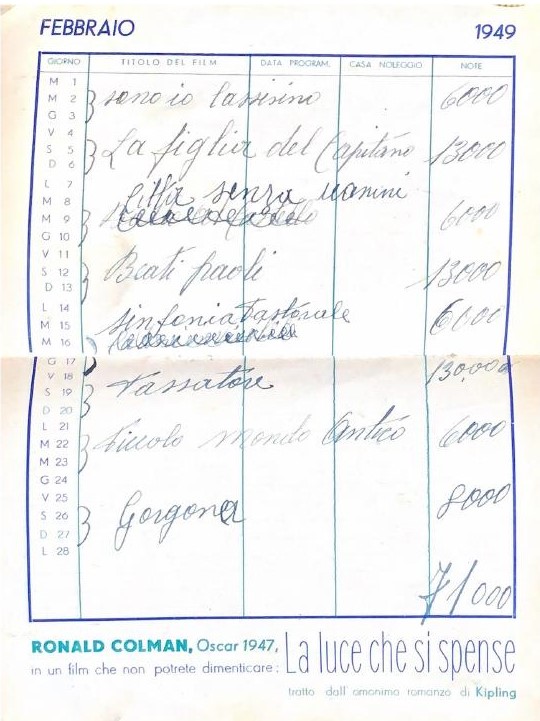 FEBBRAIO 1949
GIORNO TITOLO DEL FILM DATA PROGRAM. CASA NOLEGGIO NOTE
M 1
M 2 sono io l'assisino 6000
G 3
V 4
S 5 La figlia del Capitano 13000
D 6
L 7
M 8 Città senza uomini
M 9 6000
G 10
V 11
S 12 Beati paoli 13000
D 13
L 14
M 15 sinfonia Pastorale 6000
M 16
G 17
V 18 13000
S 19 Passatore
D 20
L 21
M 22 Piccolo mondo Antico 6000
M 23
G 24
V 25
S 26 Gorgona 8000
D 27
L 28
71000
RONALD COLMAN, Oscar 1947, La luce che si spense
in un film che non potrete dimenticare:
tratto dall' omonimo romanzo di Kipling